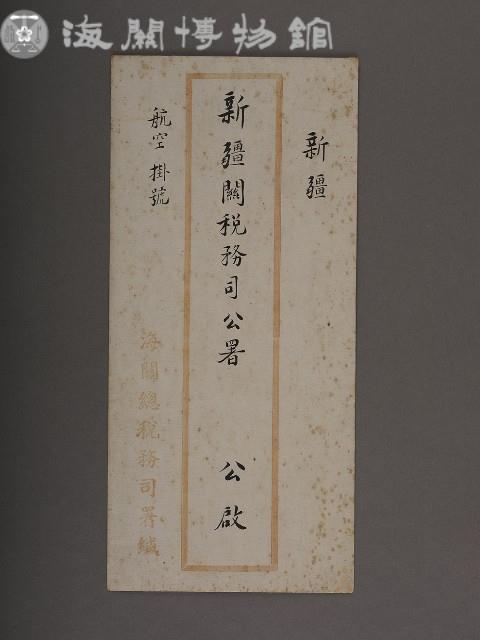 海關博物館
新疆
新疆關稅務司公署 公啟
航空掛號
海關總稅務司署緘